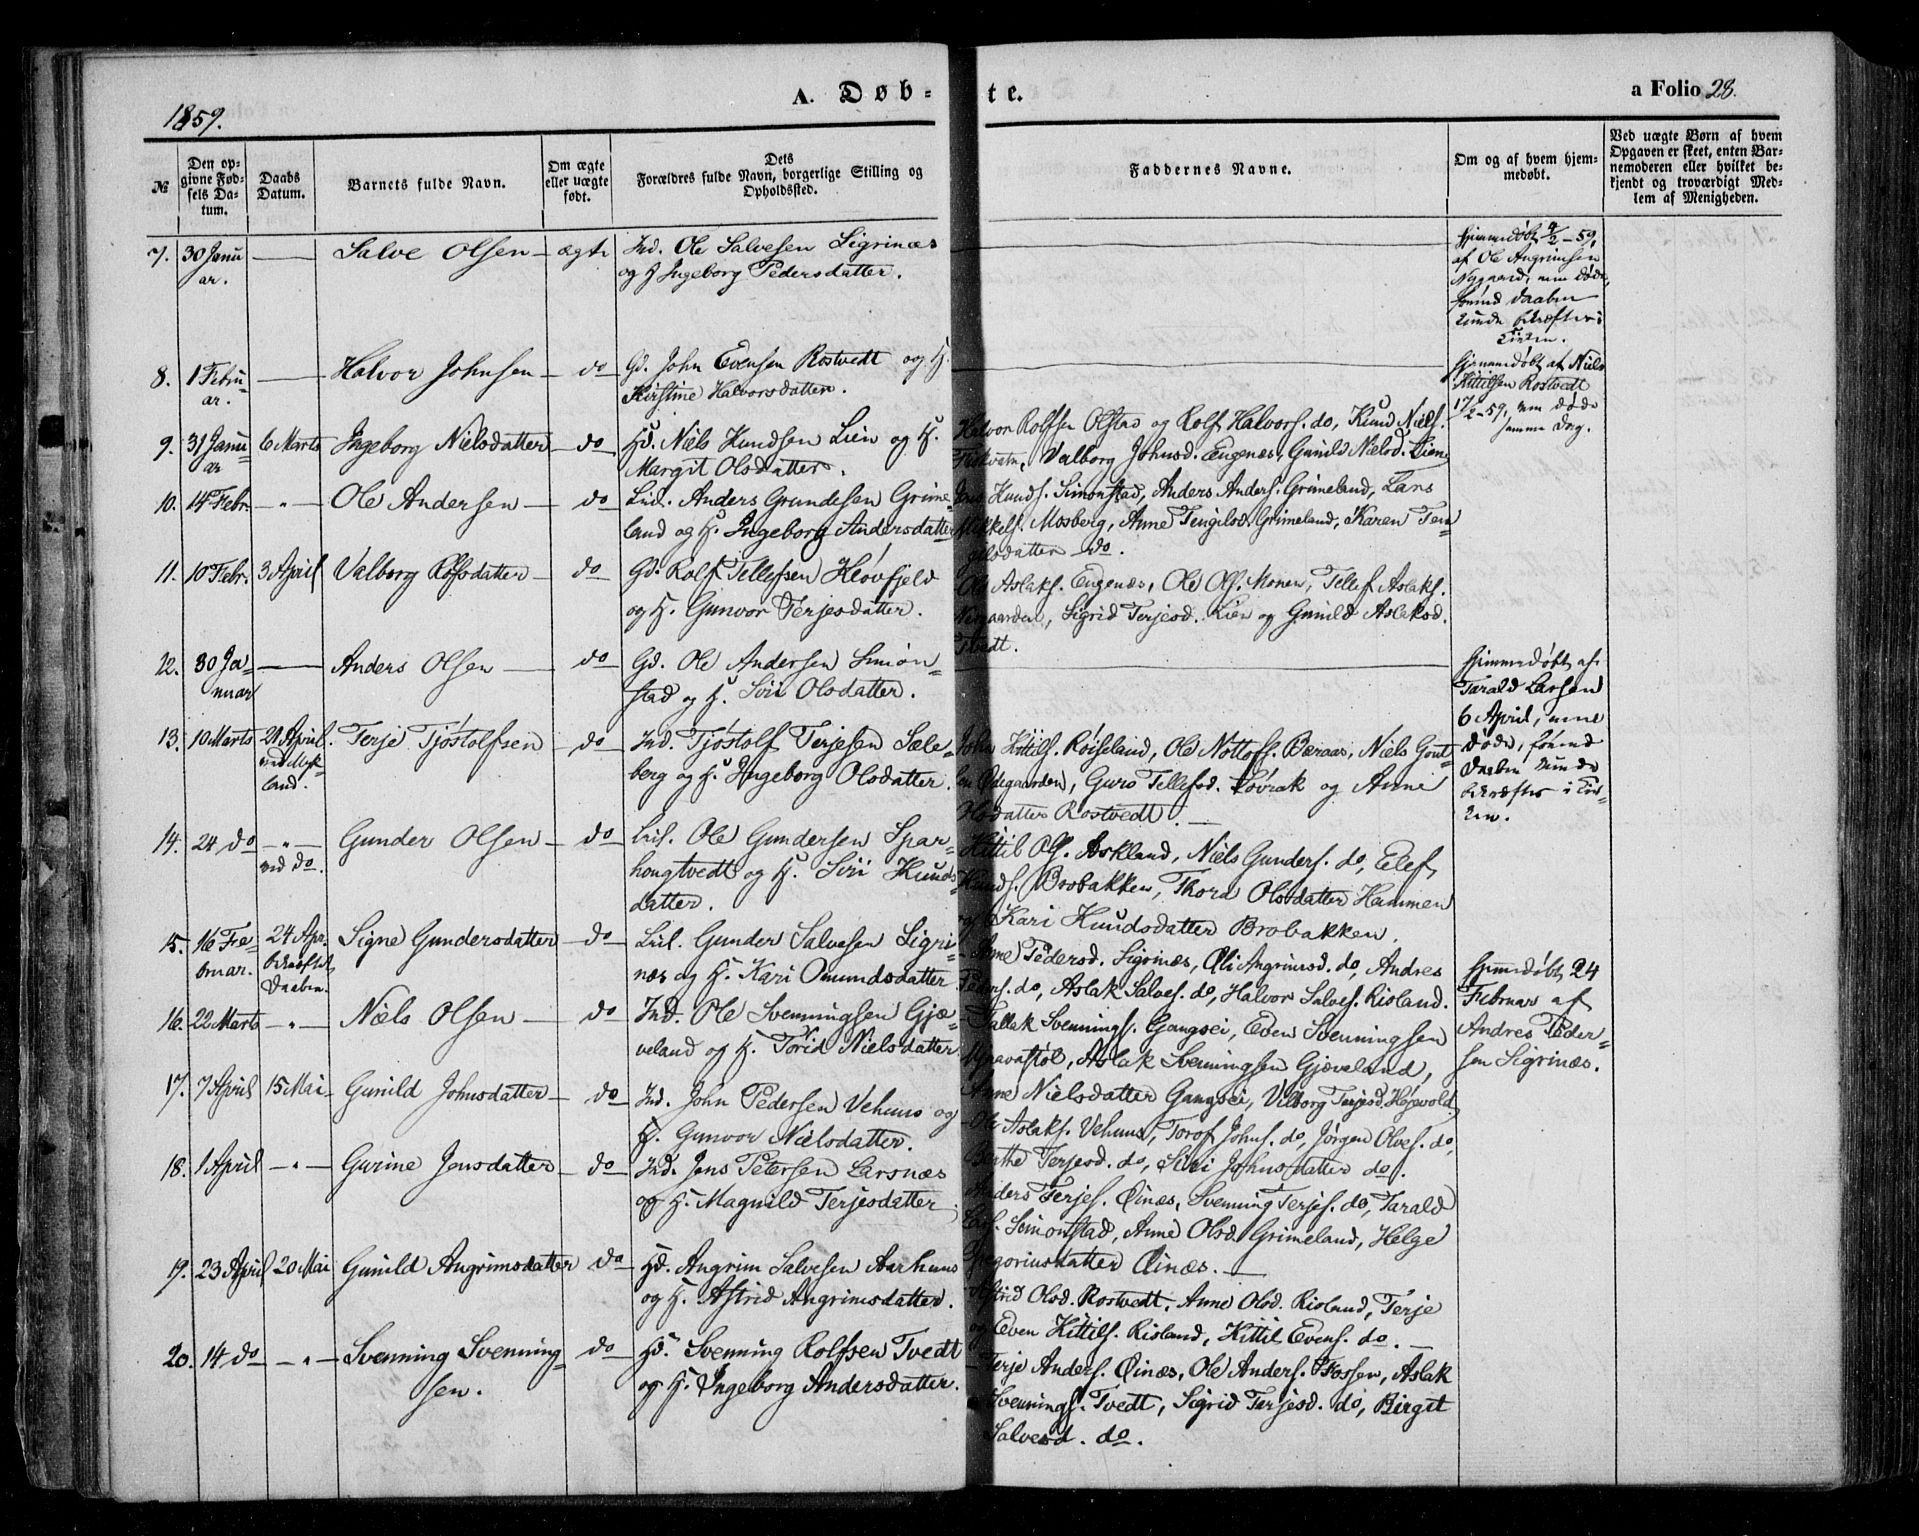 1859.
A. Døb-
te.
a Folio 28.
№
Den op-
givne Fød-
sels Da-
tum.
Daabs
Datum.
Barnets fulde Navn.
Om ægte
eller uægte
født.
Dets
Forældres fulde Navn, borgerlige Stilling og
Opholdssted.
Faddernes Navne.
Om og af hvem hjem-
medøbt.
Ved uægte Børn af hvem
Opgaven er skeet, enten Bar-
nemoderen eller hvilket be-
kjendt og troværdigt Med-
lem af Menigheden.
7. 30 Janu
ar.
Salve Olsen
ægte
Ind. Ole Salvesen Sigrinæs
og H Ingeborg Pedersdatter.
Hjemmedøbt 9/2-59,
af Ole Angrimsen
Nygaard, men døde,
førend Daaben
kunde bekræftes i
Kirken.
8. 1 Febru-
ar.
Halvor Johnsen
do
Gd. John Evensen Rostvedt og H.
Kirstine Halvorsdatter.
Hjemmedøbt af Niels
Kittilsen Rostvedt
17/2-59, men døde
samme Dag.
9. 31 Janu-
ar
6 Marts
Ingeborg Nielsdatter
do
Hd. Niels Knudsen Lien og H.
Margit Olsdatter.
Halvor Rolfsen Olstad og Rolf Halvors. do, Knud Niels.
Fiskvatn, Valborg Johnsd. Eugenæs, Gunild Nielsd. Liene
10. 14 Febr.
Ole Andersen
do
Leil. Anders Grundesen Grime-
land og H. Ingeborg Andersdatter
Jens Knuds. Simonstad, Anders Anders. Grimeland, Lars
Mikkels. Mosberg, Anne Tengilsd. Grimeland, Karen Ten-
gilsdatter do.
11. 10 Febr. 3 April
Valborg Rolfsdatter
do
Gd. Rolf Tellefsen Kløvfjeld
og H. Gunvor Terjesdatter.
Ole Aslaks. Eugenæs, Ole Ols. Monen, Tellef Aslaks.
Nergaarden, Sigrid Terjesd. Lien og Gunild Aslaksd.
Tvedt.
22. 30 Ja-
nuar
Anders Olsen
do
Gd. Ole Andersen Simon-
stad og H. Siri Olsdatter.
Hjemmedøbt af
Tarald Larsen
6 April, men
døde, førend
Daaben kunde
bekræftes i Kir-
ken.
13. 10 Marts
21 April
ved Myk-
land.
Terje Tjøstolfsen
do
Ind. Tjøstolf Terjesen Sele-
berg og H. Ingeborg Olsdatter.
John Kittils. Røiseland, Ole Nottolfs. Beraas, Niels Gout-
en Ødegaarden, Guro Tellefsd. Løvrak og Anne
Olsdatter Rostvedt.
14. 24 do
ved do.
Gunder Olsen
do
Leil. Ole Gundersen Spar-
hougtvedt og H. Siri Knuds-
datter.
Kittil Ols. Askland, Niels Gunders. do, Elef
Knuds. Brobakken, Thora Olsdatter Hammen
og Kari Knudsdatter Brobakken.
15. 16 Fe-
bruar.
24 Apr.
bekræftet
Daaben.
Signe Gundersdatter
do
Leil. Gunder Salvesen Sigri-
næs og H. Kari Omundsdatter
Anne Pedersd. Sigrinæs, Oli Angrimsd. do, Andres
Peders. do, Aslak Salves. do, Halvor Salves. Risland.
Hjemmedøbt 24
Februar af
Andres Peder-
sen Sigrinæs.
16. 22 Marts
Niels Olsen
do
Ind. Ole Svenningsen Gjæ-
veland og H. Torid Nielsdatter
Tallak Svennings. Gangsei, Even Svenningsen
Aslak Svenningsen Gjæveland,
Anne Nielsdatter Gangsei, Vilborg Terjesd. Høievold
17. 7 April 15 Mai
Gunild Johnsdatter
do
Ind. John Pedersen Vehuus og
H. Gunvor Nielsdatter.
Ole Aslaks. Vehuus, Torof Johns. do, Jørgen Olves. do,
Berthe Terjesd. do, Siri Johnsdatter do.
18. 1 April
Gurine Jensdatter
do
Ind. Jens Petersen Larsnæs
og H. Magnild Terjesdatter
Anders Terjes. Øinæs, Svenning Terjes. do, Tarald
Lars. Simonstad, Anne Olsd. Grimeland, Helge
Gregoriusdatter Øinæs.
19. 23 April 20 Mai
Gunild Angrimsdatter
do
Hd. Angrim Salvesen Aarhuus
og H. Astrid Angrimsdatter.
Astrid Olsd. Rostvedt, Anne Olsd. Risland, Terje
og Even Kittils. Risland, Kittil Evens. do.
20. 14 do
Svenning Svenning-
sen.
do
Hd. Svenning Rolfsen Tvedt
og H. Ingeborg Andersdatter.
Terje Anders. Øinæs, Ole Anders. Fossen, Aslak
Svennings. Tvedt, Sigrid Terjesd. do, Birgit
Salvesd. do.